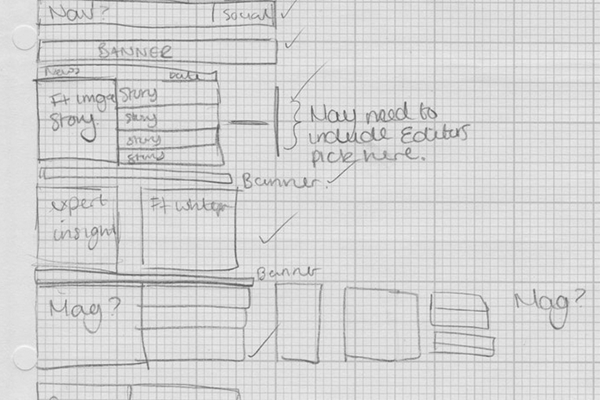 Nav? Social
BANNER
News Date
Ft image
Story.
Story
Story
Story
Story
May need to
include Editors
pick here.
Banner.
expert
insight
Ft writer
Banner
Mag?
Mag?